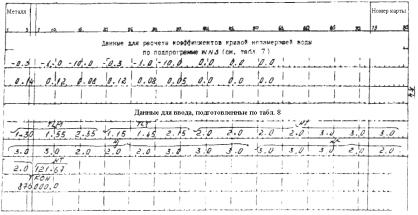 Металл Номер карты
Данные для расчета коэффициентов кривой незамерзшей воды
по подпрограмме WNS (см. табл. 7)
-0.3 -1.0 -10.0 -0.3 -1.0 -10.0 0.0 0.0 0.0
0.14 0.12 0.08 0.12 0.08 0.05 0.0 0.0 0.0
Данные для ввода, подготовленные по табл. 8
1.30 1.55 2.35 1.15 1.65 2.15 2.0 2.0 2.0 2.0 3.0 3.0 3.0
3.0 3.0 2.0 2.0 2.0 3.0 3.0 3.0 3.0 3.0 3.0 2.0 2.0
NT
2.0 121.67
TKON
876000.0